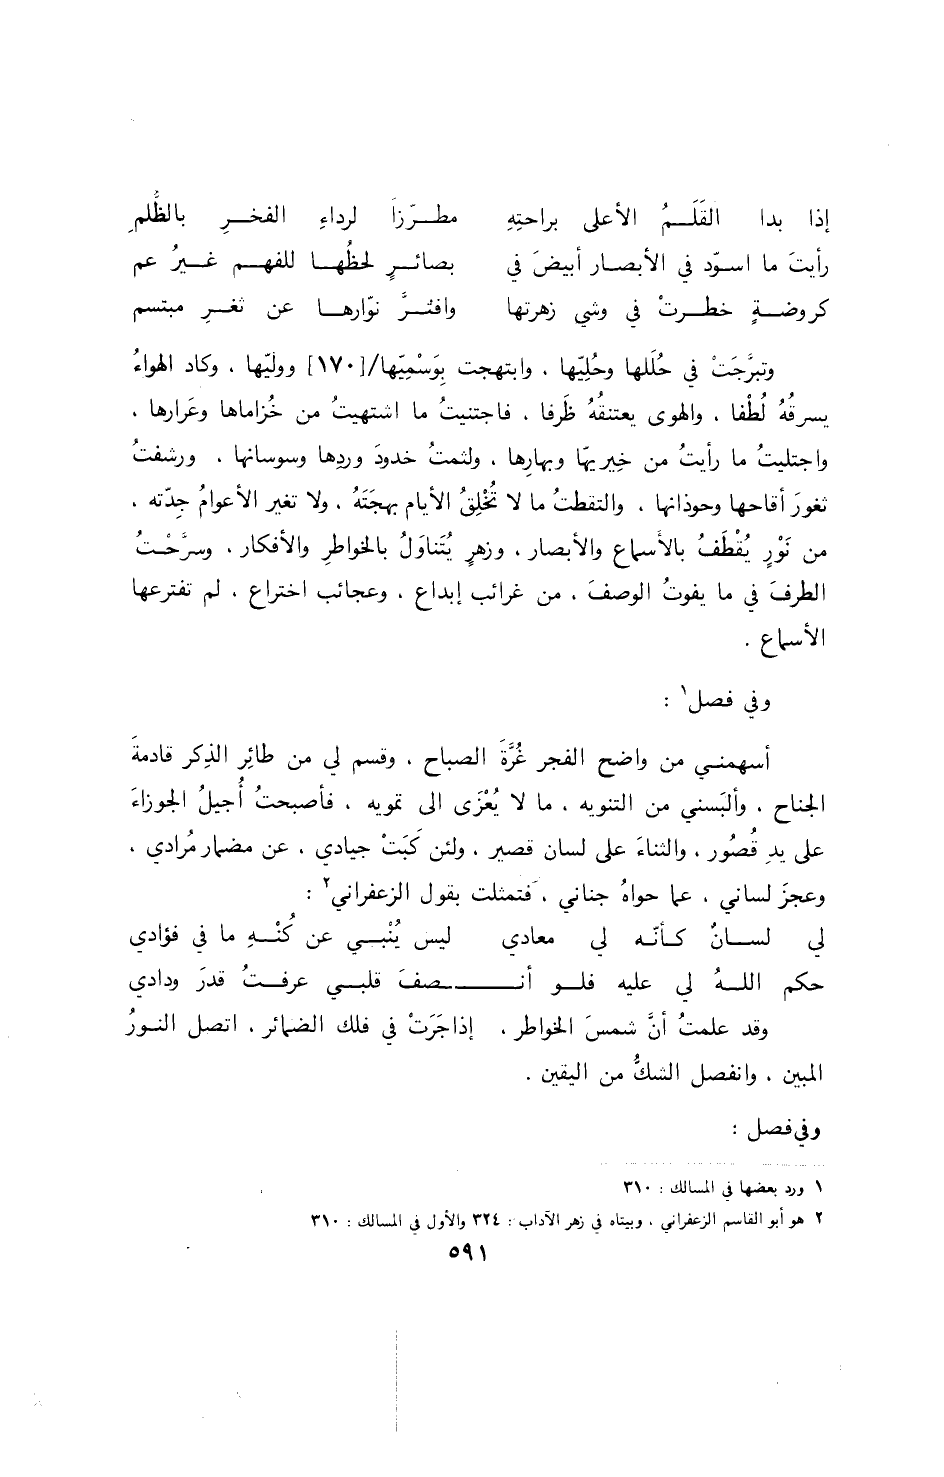 إذا بدا القَلَمُ الأعلى براحتِهِ مطرّزاً لرداءِ الفخرِ بالظُّلمِ
رأيتَ ما اسوّد في الأبصار أبيضَ في بصائرٍ لحظُها للفهم غيرُ عم
كروضةٍ خطرتْ في وشي زهرتها وافترَّ نوّارها عن ثغرِ مبتسم
وتبرَّجَتْ في حُلَلها وحُلِيّها ، وابتهجت بِوَسْمِيّها/[١٧٠] ووليّها ، وكاد الهواءُ
يسرقُهُ لُطْفا ، والهوى يعتنقُهُ ظَرفا ، فاجتنيتُ ما اشتهيتُ من خُزاماها وعَرارها ،
واجتليتُ ما رأيتُ من خِيريّها وبهارها ، ولثمتُ خدودَ وردِها وسوسانها ، ورشفتُ
ثغورَ أقاحها وحوذانها ، والتقطتُ ما لا تُخْلِقُ الأيام بهجَتَهُ ، ولا تغير الأعوامُ جِدّته ،
من نَوْرٍ يُقْطَفُ بالأسماع والأبصار ، وزهرٍ يُتَناوَلُ بالخواطرِ والأفكار ، وسرَّحْتُ
الطرفَ في ما يفوتُ الوصفَ ، من غرائب إبداع ، وعجائب اختراع ، لم تفترعها
الأسماع .
وفي فصل١ :
أسهمني من واضح الفجر غُرَّةَ الصباح ، وقسم لي من طائِر الذِكر قادمةَ
الجناح ، وألبَسني من التنويه ، ما لا يُعْزَى الى تمويه ، فأصبحتُ أُجيلُ الجوزاءَ
على يدِ قُصُور ، والثناءَ على لسان قصير ، ولئن كَبَتْ جيادي ، عن مضمار مُرادي ،
وعجزَ لساني ، عما حواهُ جناني ، فتمثلت بقول الزعفراني٢ :
لي لسانٌ كأنّه لي معادي ليس يُنْبي عن كُنْهِ ما في فؤادي
حكم اللهُ لي عليه فلو أنصفَ قلبي عرفتُ قدرَ ودادي
وقد علمتُ أنَّ شمسَ الخواطر ، إذا جَرَتْ في فلك الضمائر ، اتصل النورُ
المبين ، وانفصل الشكُّ من اليقين .
وفي فصل :
١ ورد بعضها في المسالك : ٣١٠
٢ هو أبو القاسم الزعفراني ، وبيتاه في زهر الآداب : ٣٢٤ والأول في المسالك : ٣١٠
٥٩١